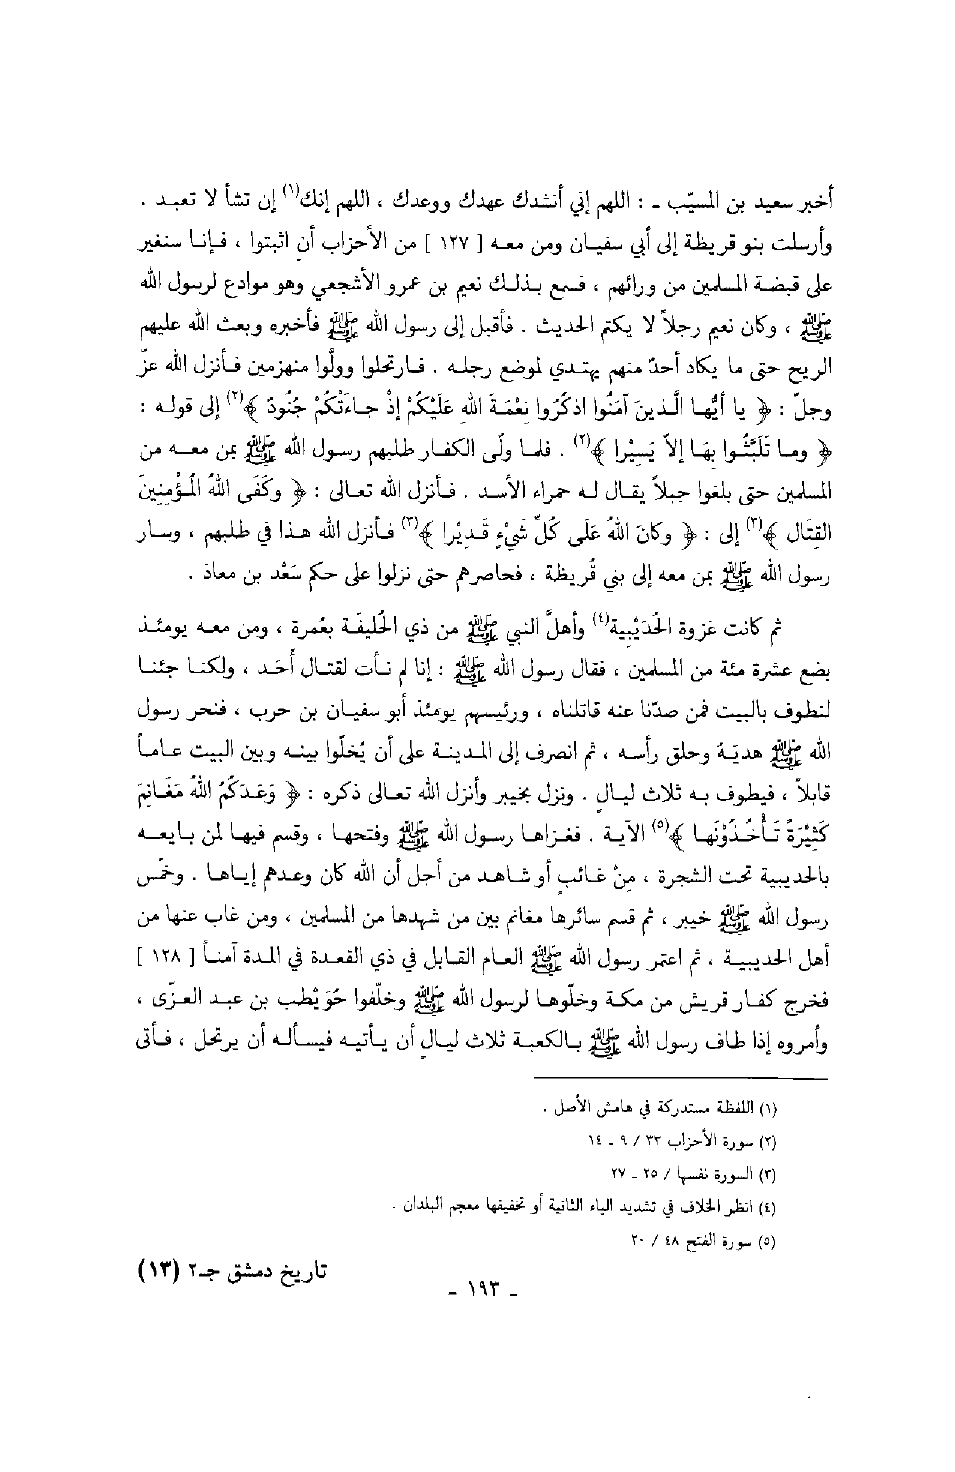 أخبر سعيد بن المسيّب ـ : اللهم إني أنشدك عهدك ووعدك ، اللهم إنك(١) إن تشأ لا تعبد .
وأرسلت بنو قريظة إلى أبي سفيان ومن معه [ ١٢٧ ] من الأحزاب أن اثبتوا ، فإنا سنغير
على قبضة المسلمين من ورائهم ، فسمع بذلك نعيم بن عمرو الأشجعي وهو موادع لرسول الله
ﷺ ، وكان نعيم رجلاً لا يكتم الحديث . فأقبل إلى رسول الله ﷺ فأخبره وبعث الله عليهم
الريح حتى ما يكاد أحدٌ منهم يهتدي لموضع رجله . فارتحلوا وولُّوا منهزمين فأنزل الله عزّ
وجلّ : ﴿ يا أيُّها الَّذينَ آمَنُوا اذكُرُوا نِعْمَةَ اللهِ عَلَيْكُمْ إذْ جاءَتْكُمْ جُنُودٌ ﴾(٢) إلى قوله :
﴿ وما تَلَبَّثُوا بِهَا إلاَّ يَسِيْرا ﴾(٢) . فلما ولّى الكفار طلبهم رسول الله ﷺ بمن معه من
المسلمين حتى بلغوا جبلاً يقال له حمراء الأسد . فأنزل الله تعالى : ﴿ وكَفَى اللهُ المُؤْمِنِينَ
القِتَال ﴾(٣) إلى : ﴿ وكانَ اللهُ عَلَى كُلِّ شَيْءٍ قَدِيْرا ﴾(٣) فأنزل الله هذا في طلبهم ، وسار
رسول الله ﷺ بمن معه إلى بني قُريظة ، فحاصرهم حتى نزلوا على حكم سَعْد بن معاذ .
ثم كانت غزوة الحُدَيْبِية(٤) وأهلَّ النبي ﷺ من ذي الحُليفَة بعُمرة ، ومن معه يومئذ
بضع عشرة مئة من المسلمين ، فقال رسول الله ﷺ : إنا لم نأت لقتال أحَد ، ولكنا جئنا
لنطوف بالبيت فمن صدّنا عنه قاتلناه ، ورئيسهم يومئذ أبو سفيان بن حرب ، فنحر رسول
الله ﷺ هديَهُ وحلق رأسه ، ثم انصرف إلى المدينة على أن يُخلّوا بينه وبين البيت عاماً
قابلاً ، فيطوف به ثلاث ليالٍ . ونزل بخيبر وأنزل الله تعالى ذكره : ﴿ وَعَدَكُمُ اللهُ مَغَانِمَ
كَثِيْرَةً تَأْخُذُوْنَها ﴾(٥) الآية . فغزاها رسول الله ﷺ وفتحها ، وقسم فيها لمن بايعه
بالحديبية تحت الشجرة ، مِنْ غائبٍ أو شاهد من أجل أن الله كان وعدهم إياها . وخمّس
رسول الله ﷺ خيبر ، ثم قسم سائرها مغانم بين من شهدها من المسلمين ، ومن غاب عنها من
أهل الحديبية ، ثم اعتمر رسول الله ﷺ العام القابل في ذي القعدة في المدة آمناً [ ١٢٨ ]
فخرج كفار قريش من مكة وخلّوها لرسول الله ﷺ وخلّفوا حُوَيْطب بن عبد العزّى ،
وأمروه إذا طاف رسول الله ﷺ بالكعبة ثلاث ليالٍ أن يأتيه فيسأله أن يرتحل ، فأتى
(١) اللفظة مستدركة في هامش الأصل .
(٢) سورة الأحزاب ٣٣ / ٩ ـ ١٤
(٣) السورة نفسها / ٢٥ ـ ٢٧
(٤) انظر الخلاف في تشديد الياء الثانية أو تخفيفها معجم البلدان .
(٥) سورة الفتح ٤٨ / ٢٠
ـ ١٩٣ ـ
تاريخ دمشق جـ٢ (١٣)